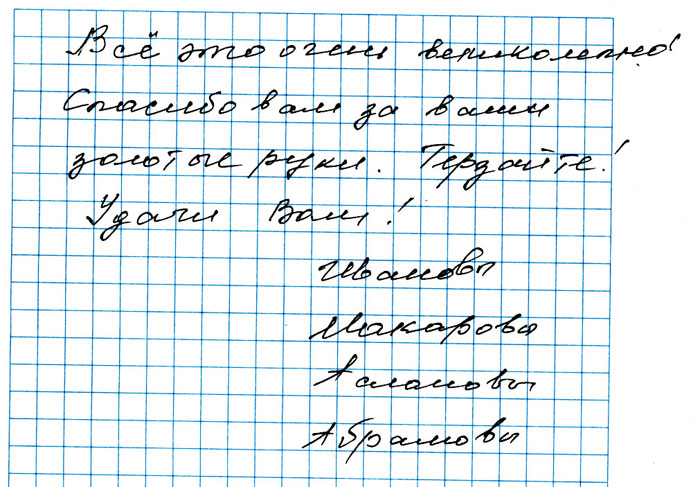 Всё это очень великолепно!
Спасибо вам за ваши
золотые руки. Терзайте!
Удачи Вам!
Ивановы
Макаровы
Аслановы
Абрамовы